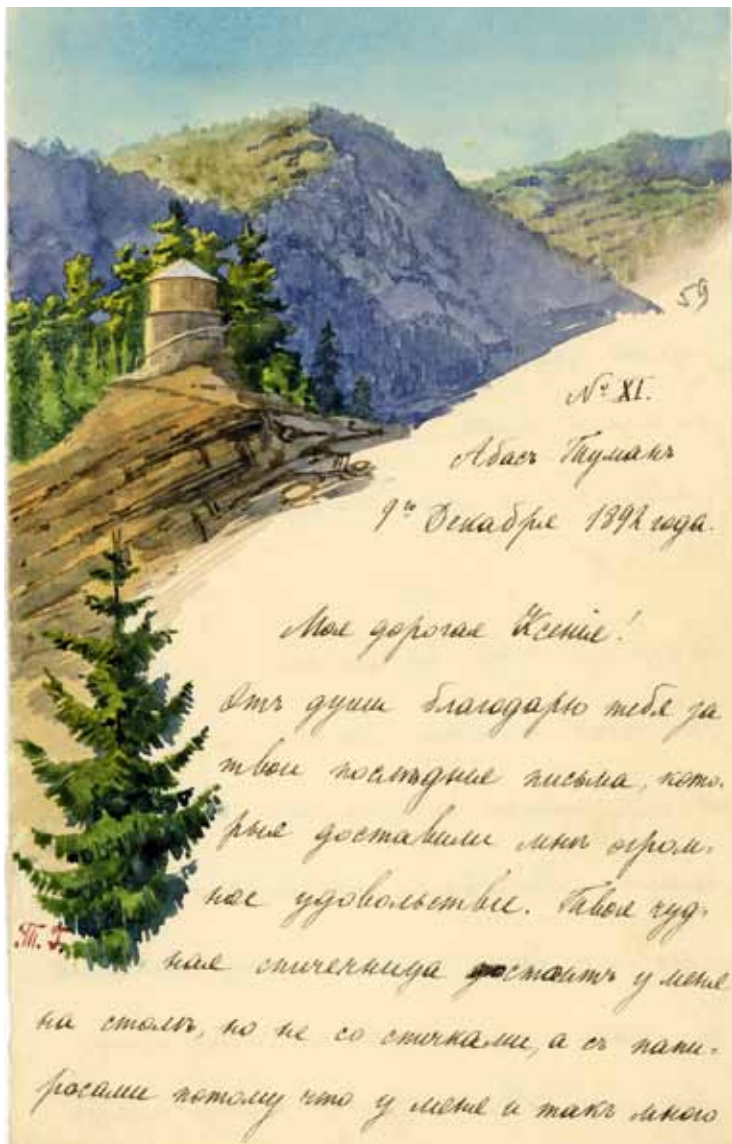 59
№ XI.
Абасъ Туманъ
9го Декабря 1892 года.
Моя дорогая Ксенія!
Отъ души благодарю тебя за
твои послѣдніе письма, кото-
рыя доставили мнѣ огром-
ное удовольствіе. Твоя чуд-
Т. Г.
ная спичечница стоитъ у меня
на столѣ, но не со спичками, а съ папи-
росами потому что у меня и такъ много